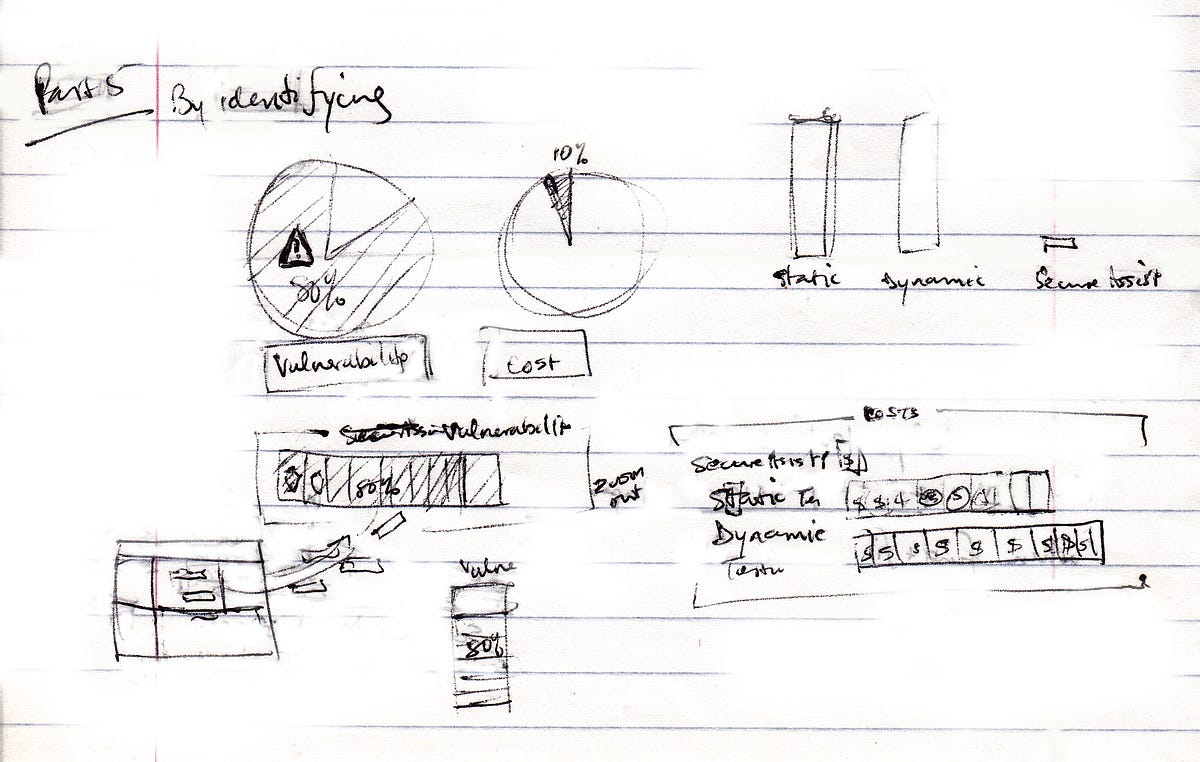 Part 5 By identifying
10%
80%
Static Dynamic Secure Assist
Vulnerability Cost
Vulnerability
Costs
80%
Zoom out
Secure Assist $
Static
$ $
Dynamic
$ $ $ $ $ $ $ $ $
Vulne
80%